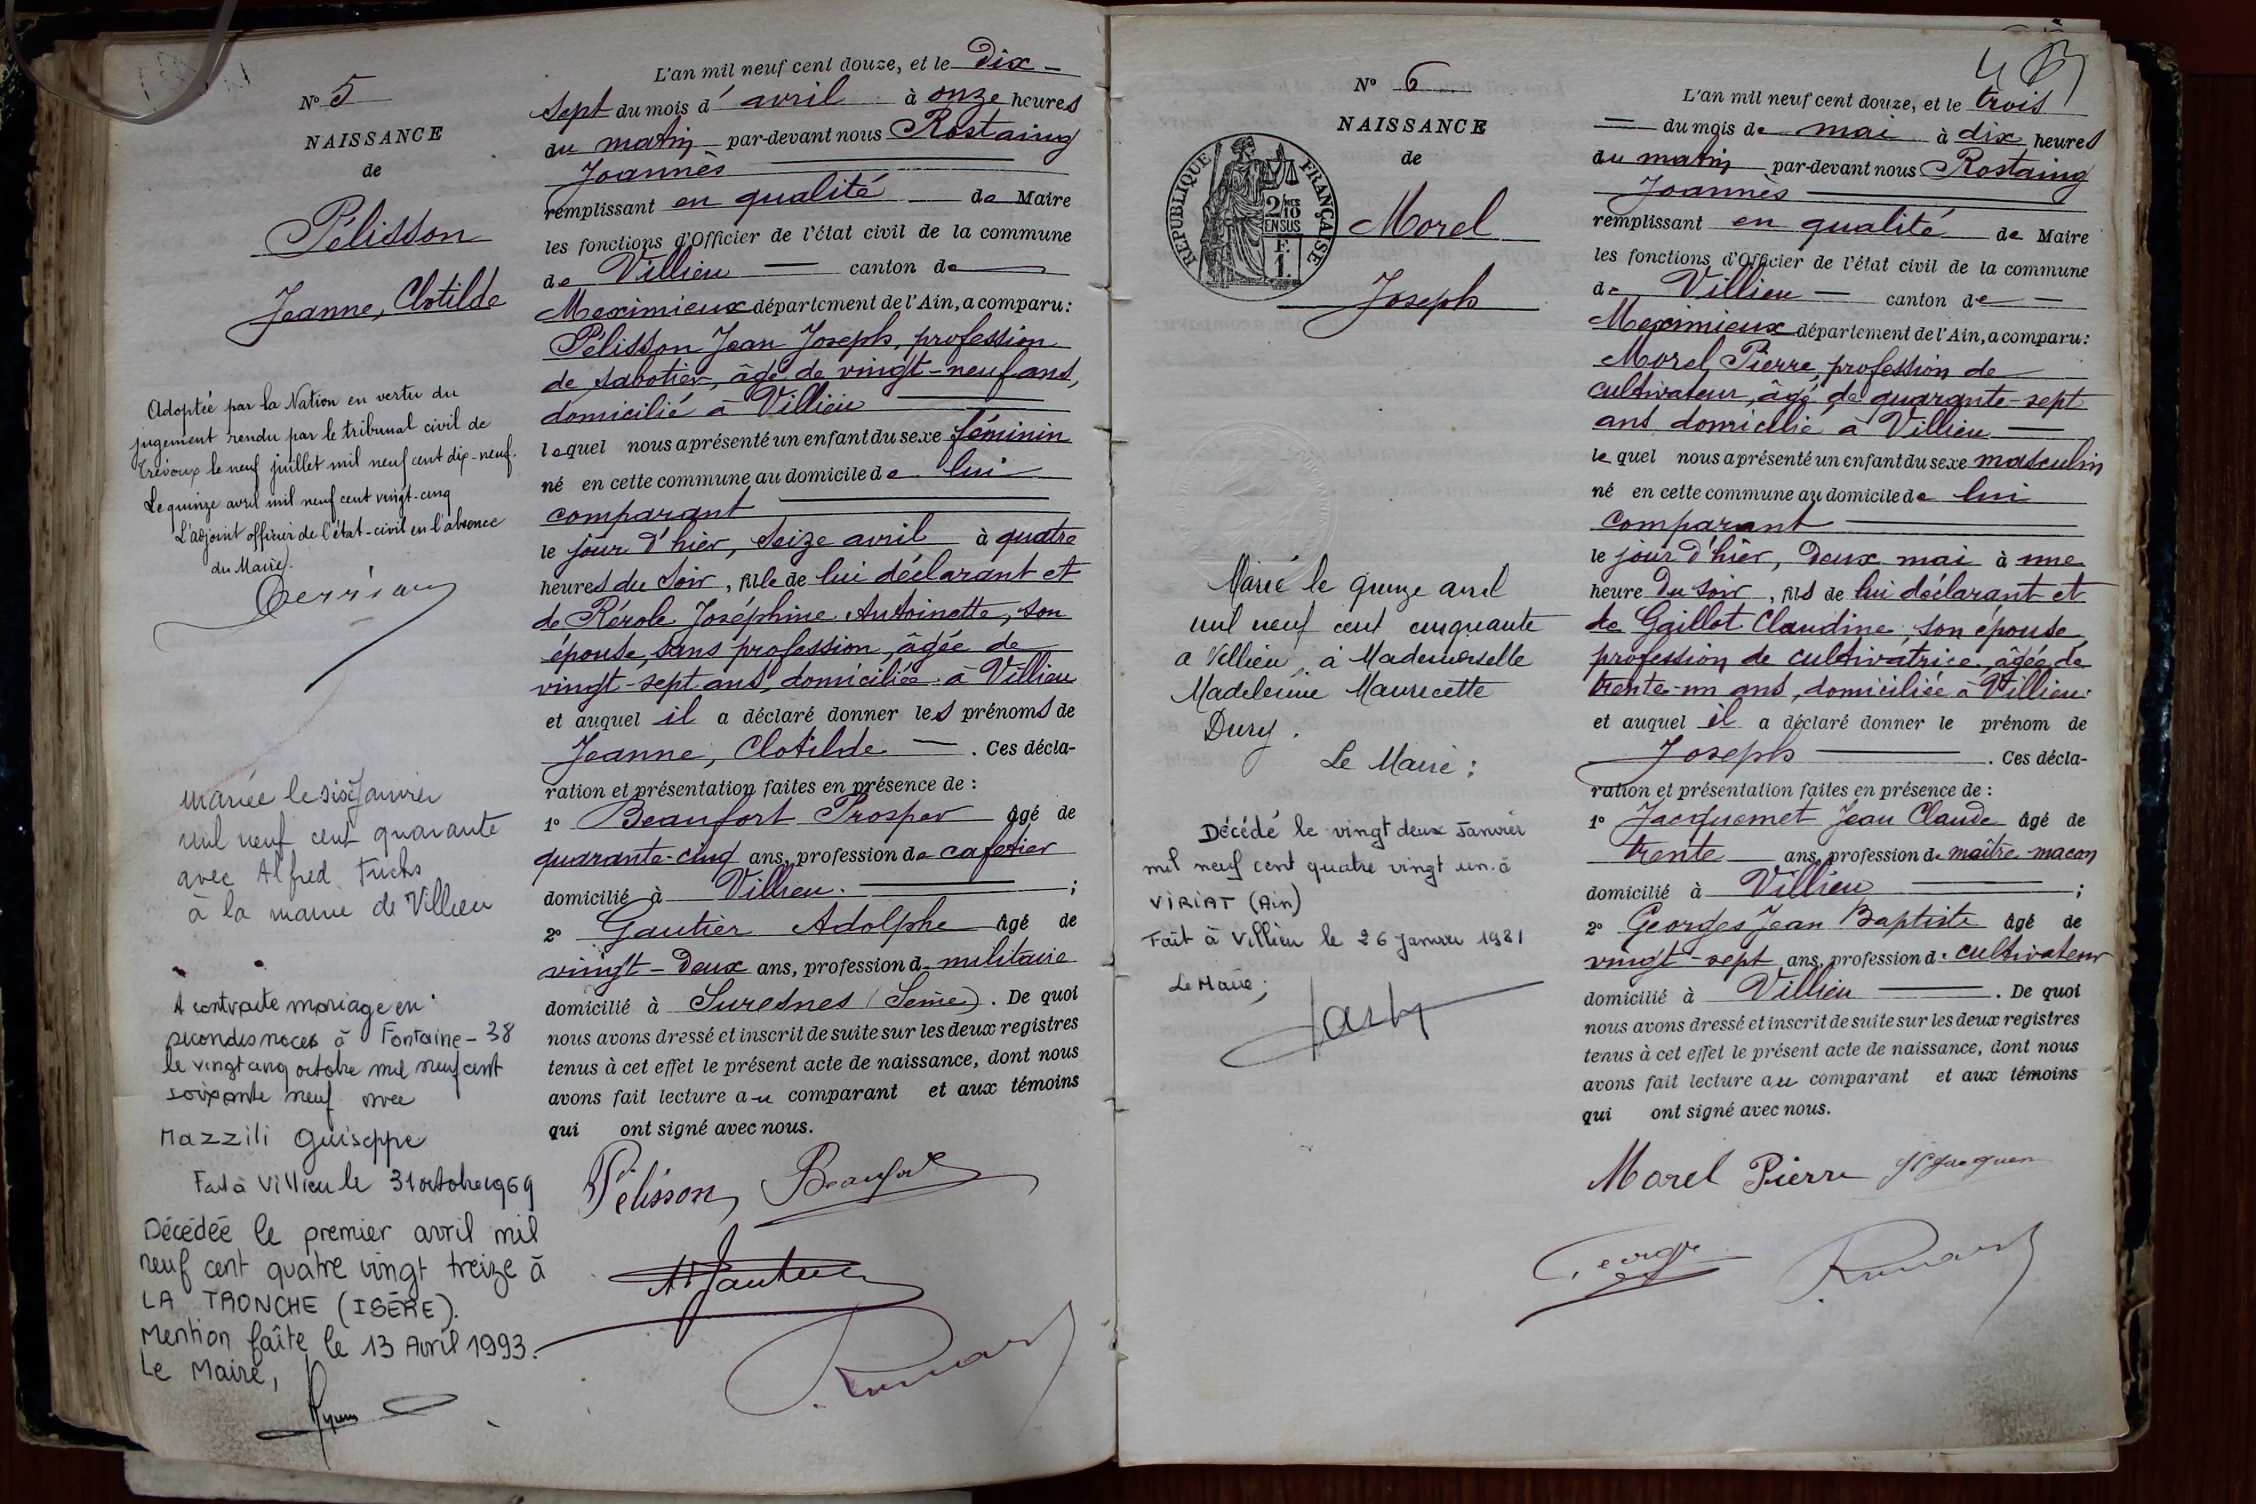 N° 5
NAISSANCE
de
Pélisson
Jeanne, Clotilde
Adoptée par la Nation en vertu du
jugement rendu par le tribunal civil de
Trévoux le neuf juillet mil neuf cent dix-neuf.
Le quinze avril mil neuf cent vingt-cinq
L'adjoint officier de l'état-civil en l'absence
du Maire.
mariée le six Janvier
mil neuf cent quarante
avec Alfred Fuchs
à la mairie de Villieu
A contracté mariage en
secondes noces à Fontaine - 38
le vingt cinq octobre mil neuf cent
soixante neuf avec
Mazzili Guiseppe
Fait à Villieu le 31 octobre 1969
Décédée le premier avril mil
neuf cent quatre vingt treize à
LA TRONCHE (ISÈRE).
Mention faîte le 13 Avril 1993.
Le Maire,
L'an mil neuf cent douze, et le Dix-
sept du mois d' avril à onze heures
du matin par-devant nous Rostaing
Joannès
remplissant en qualité de Maire
les fonctions d'Officier de l'état civil de la commune
de Villieu canton de
Meximieux département de l'Ain, a comparu:
Pélisson Jean Joseph, profession
de sabotier, âgé de vingt-neuf ans,
domicilié à Villieu
lequel nous a présenté un enfant du sexe féminin
né en cette commune au domicile de lui
comparant
le jour d'hier, seize avril à quatre
heures du soir, fille de lui déclarant et
de Rérole Joséphine Antoinette, son
épouse, sans profession, âgée de
vingt-sept ans, domiciliée à Villieu
et auquel il a déclaré donner les prénoms de
Jeanne, Clotilde — . Ces décla-
ration et présentation faites en présence de :
1° Beaufort Prosper âgé de
quarante-cinq ans, profession de cafetier
domicilié à Villieu. ;
2° Gautier Adolphe âgé de
vingt-deux ans, profession de militaire
domicilié à Suresnes (Seine). De quoi
nous avons dressé et inscrit de suite sur les deux registres
tenus à cet effet le présent acte de naissance, dont nous
avons fait lecture au comparant et aux témoins
qui ont signé avec nous.
Pélisson Beaufort
A Gautier
N° 6
NAISSANCE
de
RÉPUBLIQUE FRANÇAISE
2/10 MES
EN SUS
F.
1.
Morel
Joseph
Marié le quinze avril
mil neuf cent cinquante
a Villieu, à Mademoiselle
Madeleine Mauricette
Dury.
Le Maire :
Décédé le vingt deux Janvier
mil neuf cent quatre vingt un à
VIRIAT (Ain)
Fait à Villieu le 26 Janvier 1981
Le Maire,
L'an mil neuf cent douze, et le trois
— du mois de mai à dix heures
du matin par-devant nous Rostaing
Joannès
remplissant en qualité de Maire
les fonctions d'Officier de l'état civil de la commune
de Villieu — canton de —
Meximieux département de l'Ain, a comparu:
Morel Pierre, profession de
cultivateur, âgé de quarante-sept
ans domicilié à Villieu
lequel nous a présenté un enfant du sexe masculin
né en cette commune au domicile de lui
comparant
le jour d'hier, deux mai à une
heure du soir, fils de lui déclarant et
de Gaillot Claudine, son épouse,
profession de cultivatrice, âgée de
trente-un ans, domiciliée à Villieu.
et auquel il a déclaré donner le prénom de
Joseph . Ces décla-
ration et présentation faites en présence de :
1° Jacquemet Jean Claude âgé de
trente ans, profession de maître-maçon
domicilié à Villieu ;
2° Georges Jean Baptiste âgé de
vingt-sept ans, profession de cultivateur
domicilié à Villieu . De quoi
nous avons dressé et inscrit de suite sur les deux registres
tenus à cet effet le présent acte de naissance, dont nous
avons fait lecture au comparant et aux témoins
qui ont signé avec nous.
Morel Pierre